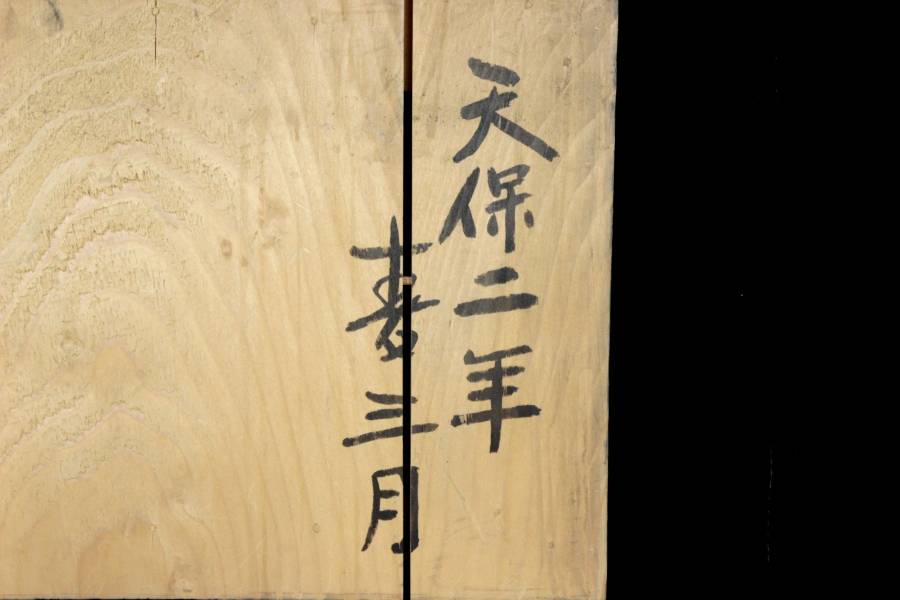 天保二年
春三月